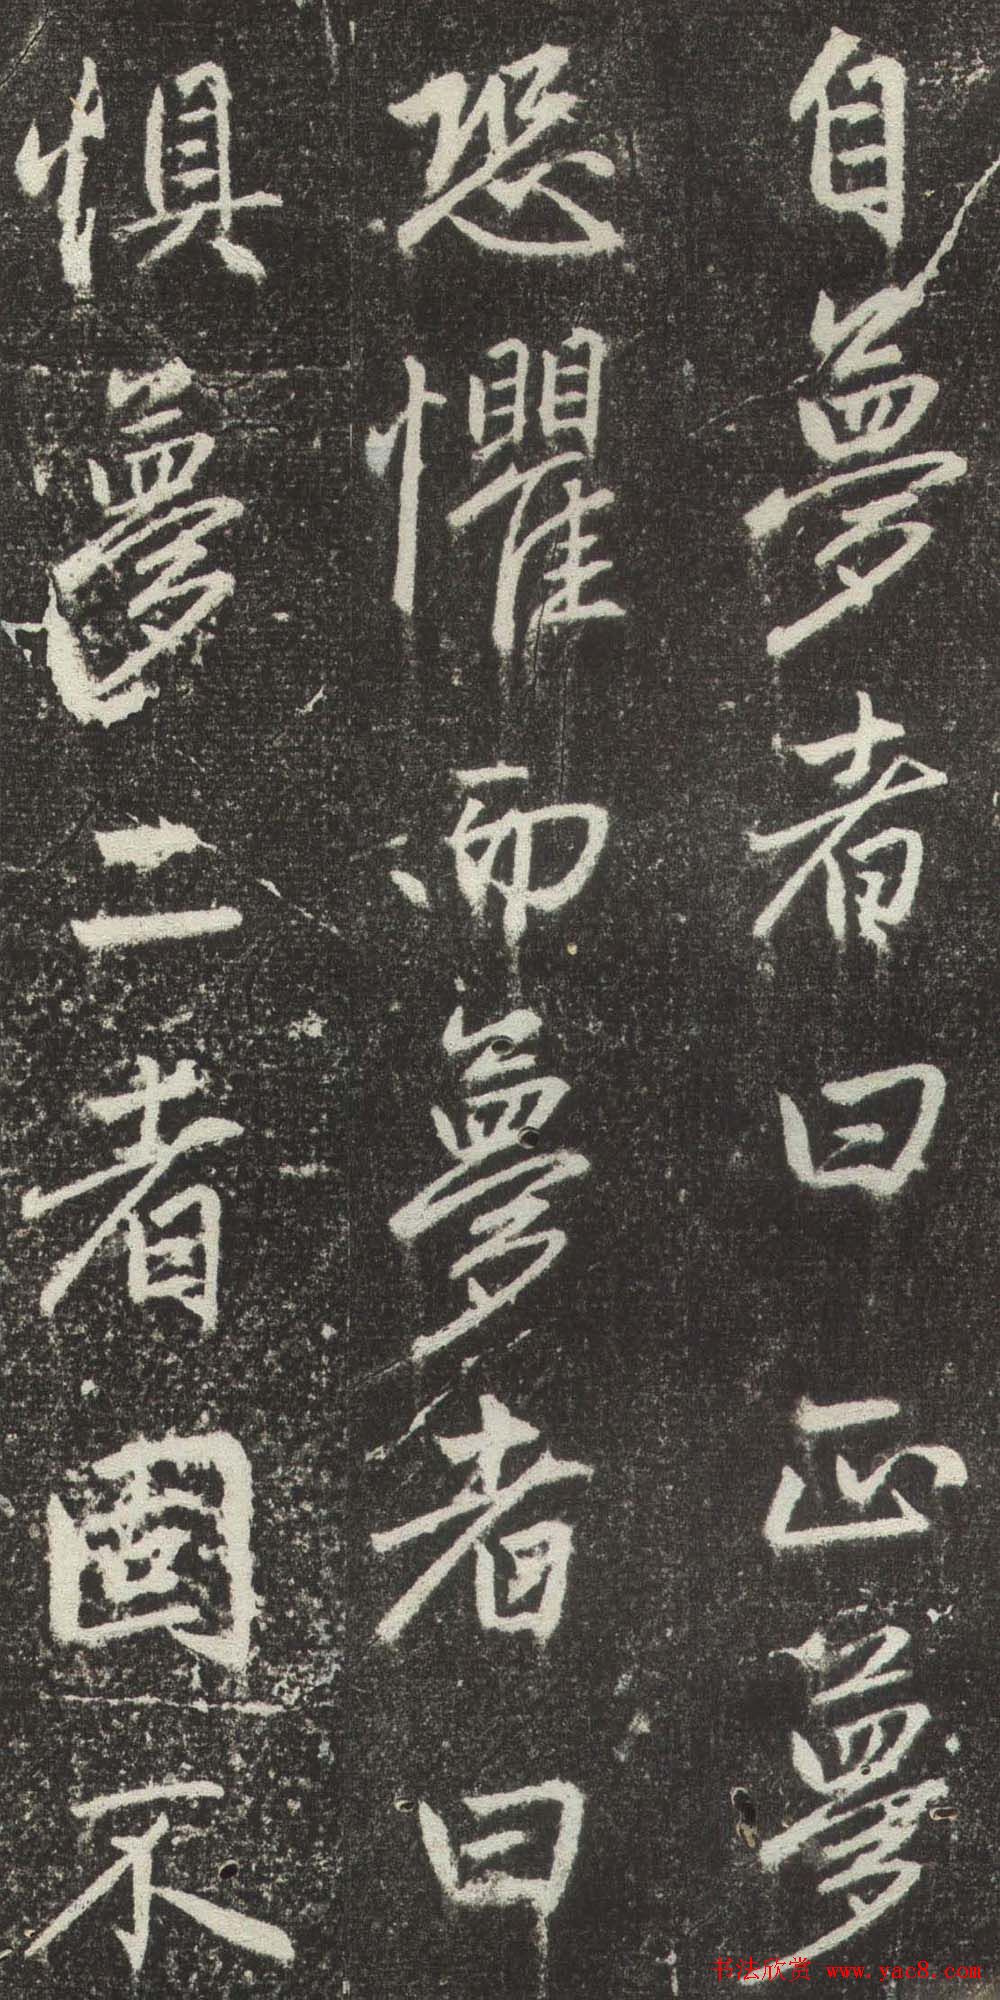 自夢者曰正夢
恐懼而夢者曰
惧夢二者固不
书法欣赏 www.yac8.com